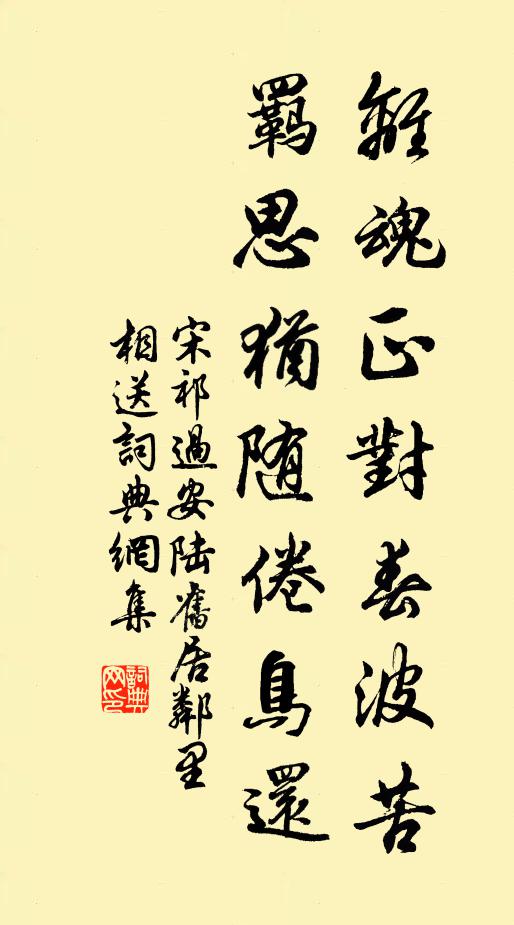 離魂正對春波苦
羈思猶随倦鳥還
宋祁過安陸舊居鄰里
相送詞典網集
詞典網印